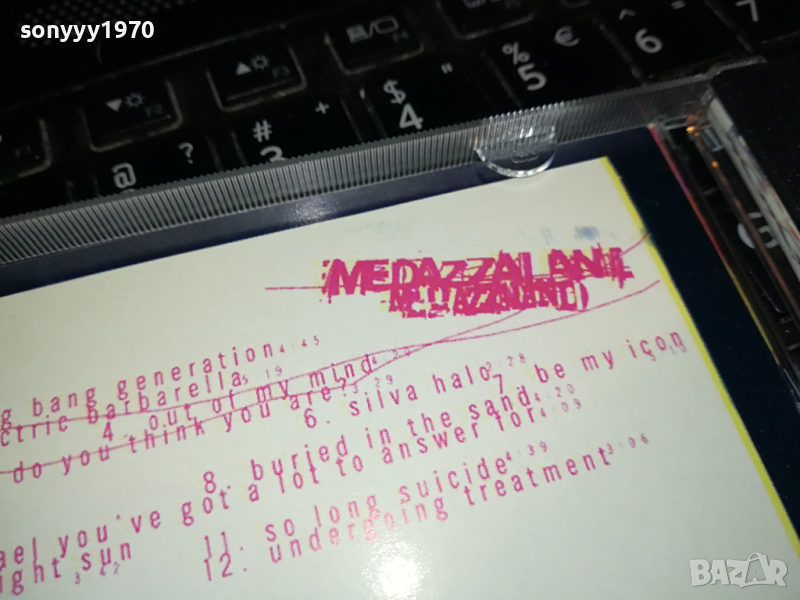 sonyyy1970
MEDAZZALAND
g bang generation 4:45
ctric barbarella 5:19
4. out of my mind 4:20
do you think you are? 3:29
6. silva halo 2:28
7. be my icon
8. buried in the sand 4:20
you've got a lot to answer for 4:09
ight sun
11. so long suicide 4:39
12. undergoing treatment 3:06
@
?
#
3
+
F3
F4
$
4
"
%
5
€
6
7
F2
BAZAR